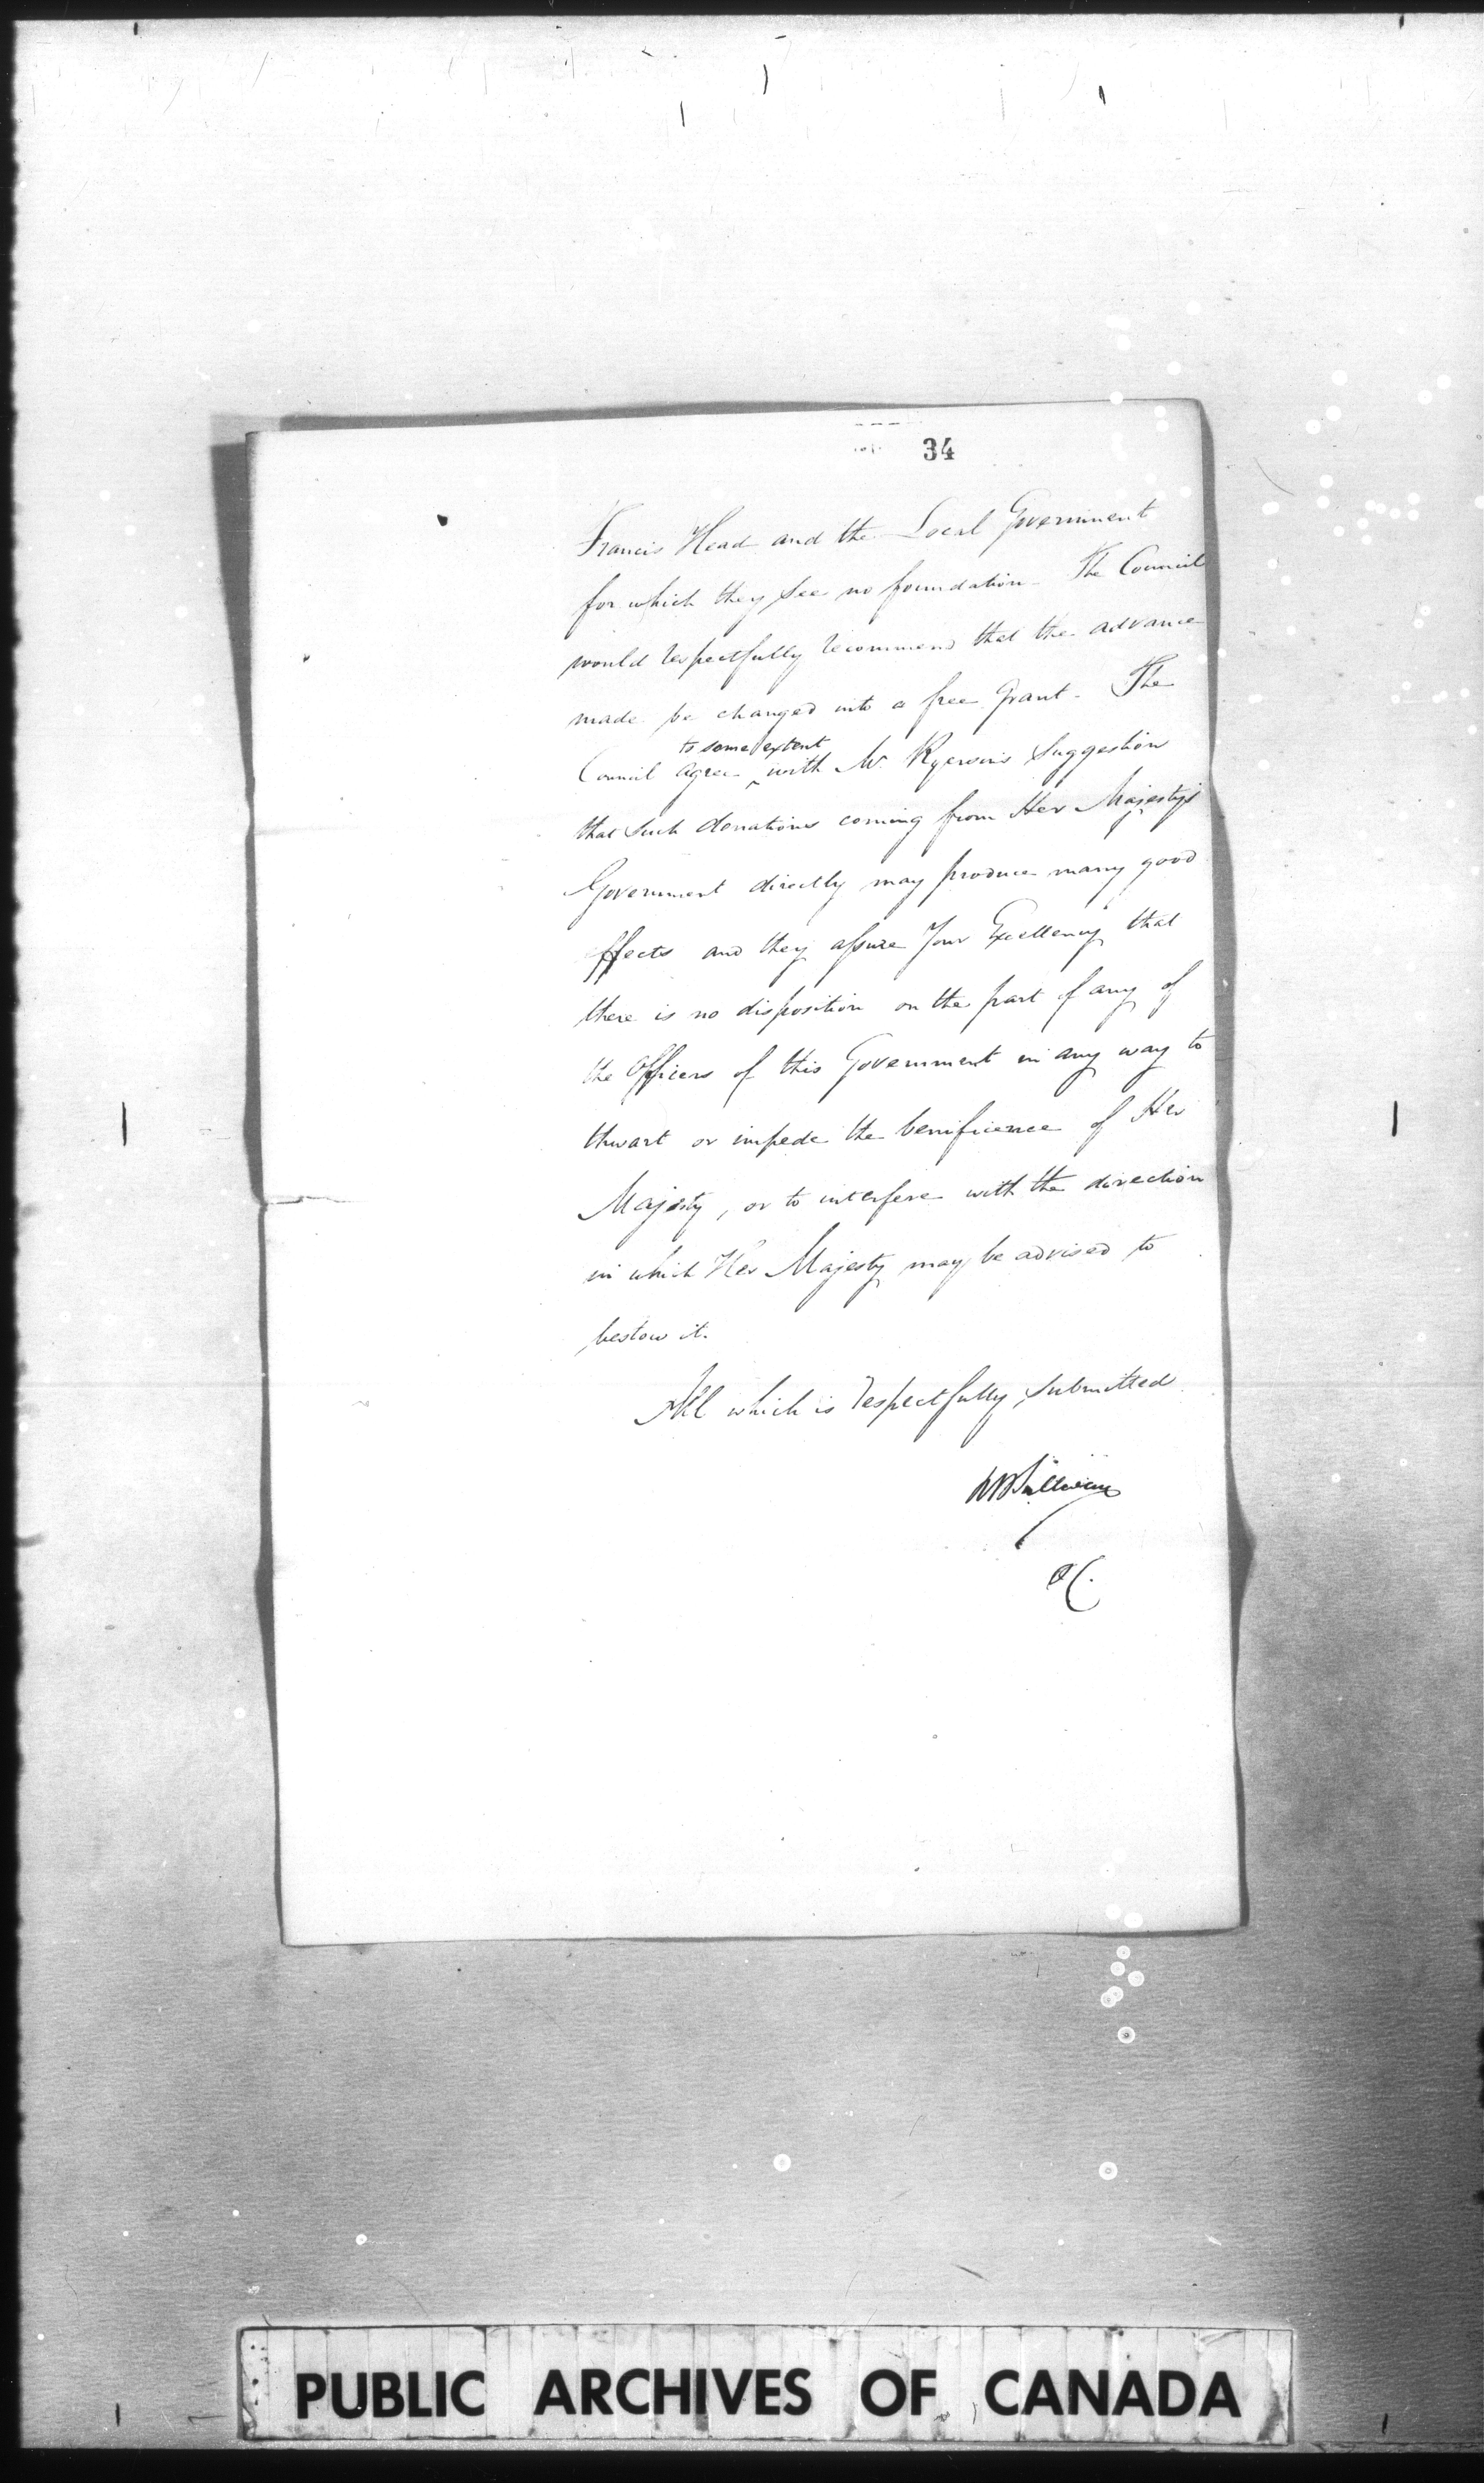 34
Francis Head and the Local Government
for which they see no foundation – The Council
would respectfully recommend that the advance
made be changed into a free Grant – The
to some extent
Council agree ^ with Mr Ryerson's Suggestion
that such donations coming from Her Majesty's
Government directly may produce many good
effects and they assure Your Excellency that
there is no disposition on the part of any of
the Officers of this Government in any way to
thwart or impede the benificience of Her
Majesty, or to interfere with the direction
in which Her Majesty may be advised to
bestow it.
All which is respectfully submitted
RB Sullivan
PC.
PUBLIC ARCHIVES OF CANADA